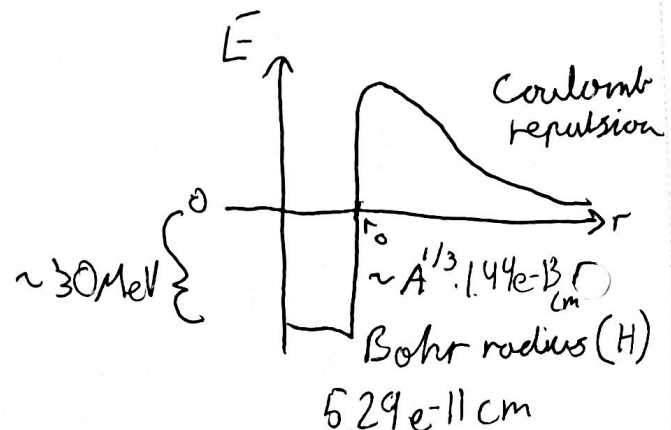 E
Coulomb
repulsion
0
r₀
r
~30MeV
~A^1/3·1.44e-13
cm
Bohr radius (H)
529e-11 cm